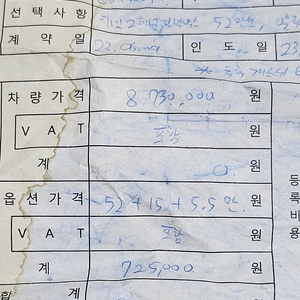 선택사항 52만,
계약일 인도일 23
차량가격 8,730,000 원
VAT 포함 원
계 0. 원
옵션가격 52+15+5.5만 원
VAT 포함 원
계 725,000 원
합 계 원
등록비용